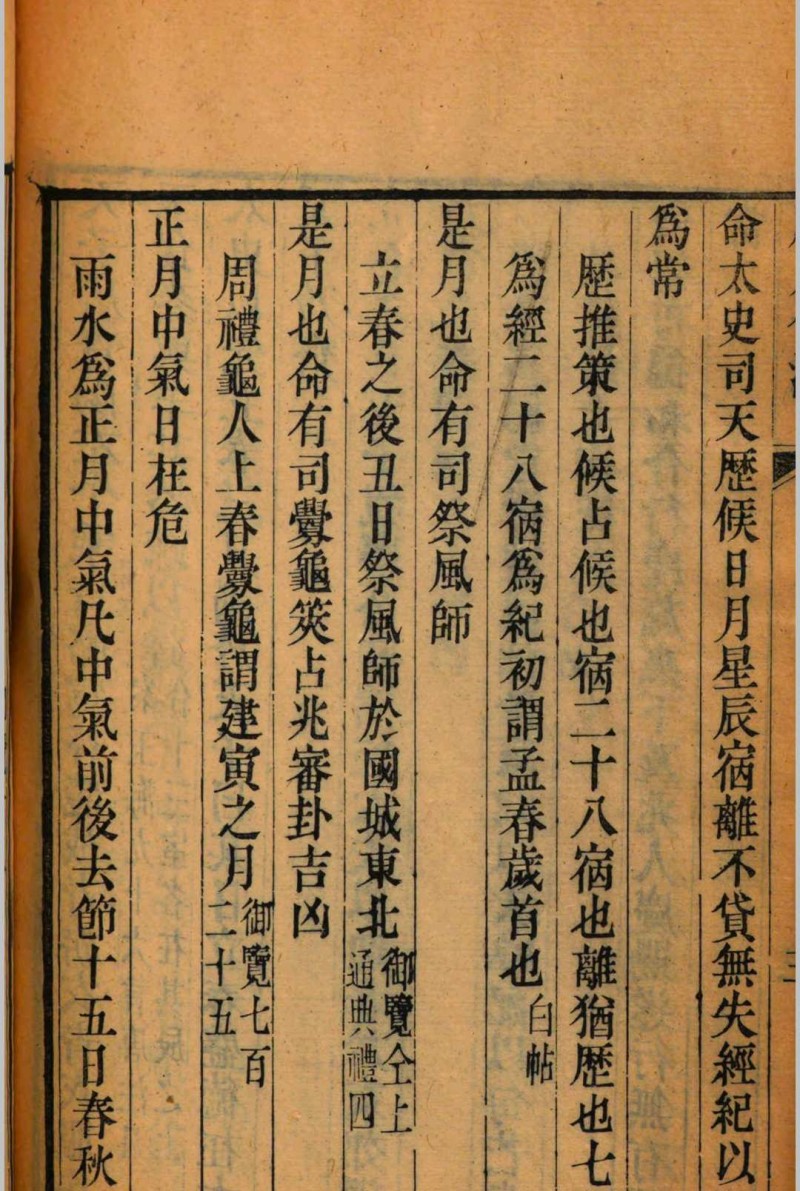 命太史司天歷候日月星辰宿離不貸無失經紀以
爲常
歷推策也候占候也宿二十八宿也離猶歷也七
爲經二十八宿爲紀初謂孟春歲首也白帖
是月也命有司祭風師
立春之後丑日祭風師於國城東北御覽仝上通典禮四
是月也命有司釁龜筴占兆審卦吉凶
周禮龜人上春釁龜謂建寅之月御覽七百二十五
正月中氣日在危
雨水爲正月中氣凡中氣前後去節十五日春秋